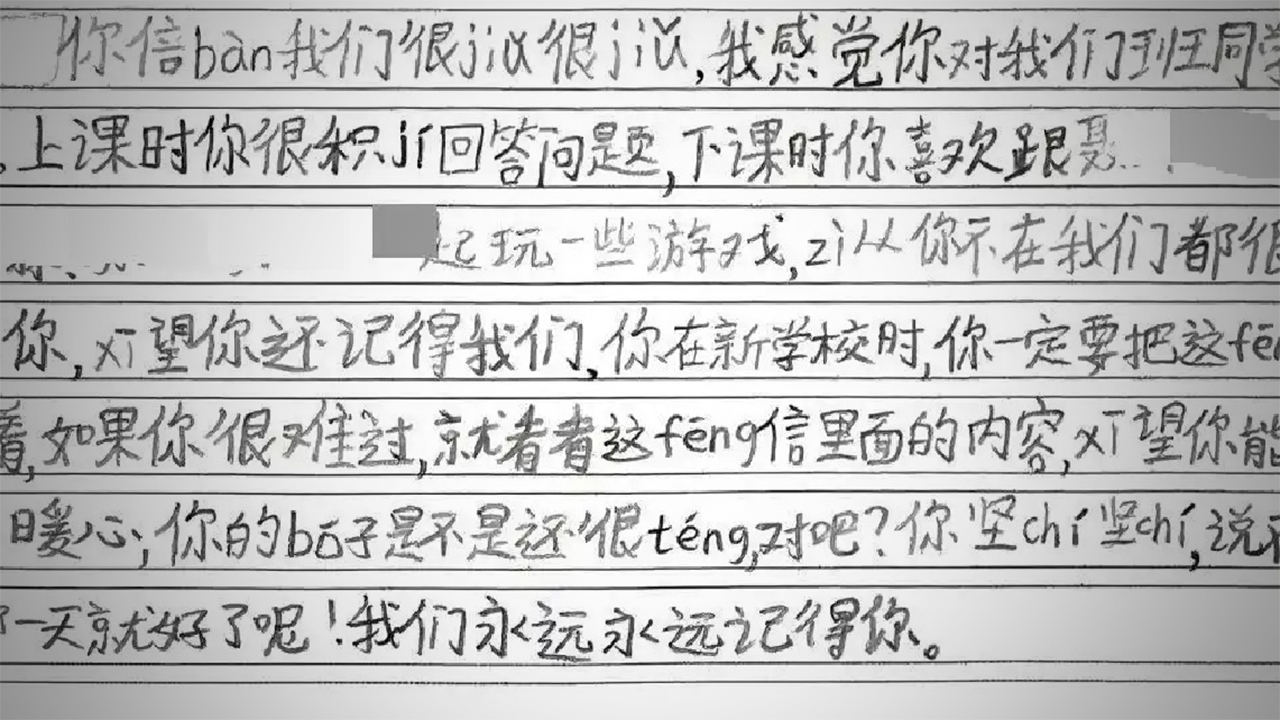 你信bàn我们很jiǔ很jiǔ,我感觉你对我们班同学
,上课时你很积jí回答问题,下课时你喜欢跟聂
起玩一些游戏,zì从你不在我们都很
你,xī望你还记得我们,你在新学校时,你一定要把这fēn
着,如果你很难过,就看看这fēng信里面的内容,xī望你能
暖心,你的bó子是不是还很téng,对吧?你坚chí坚chí,说不
一天就好了呢!我们永远永远记得你。